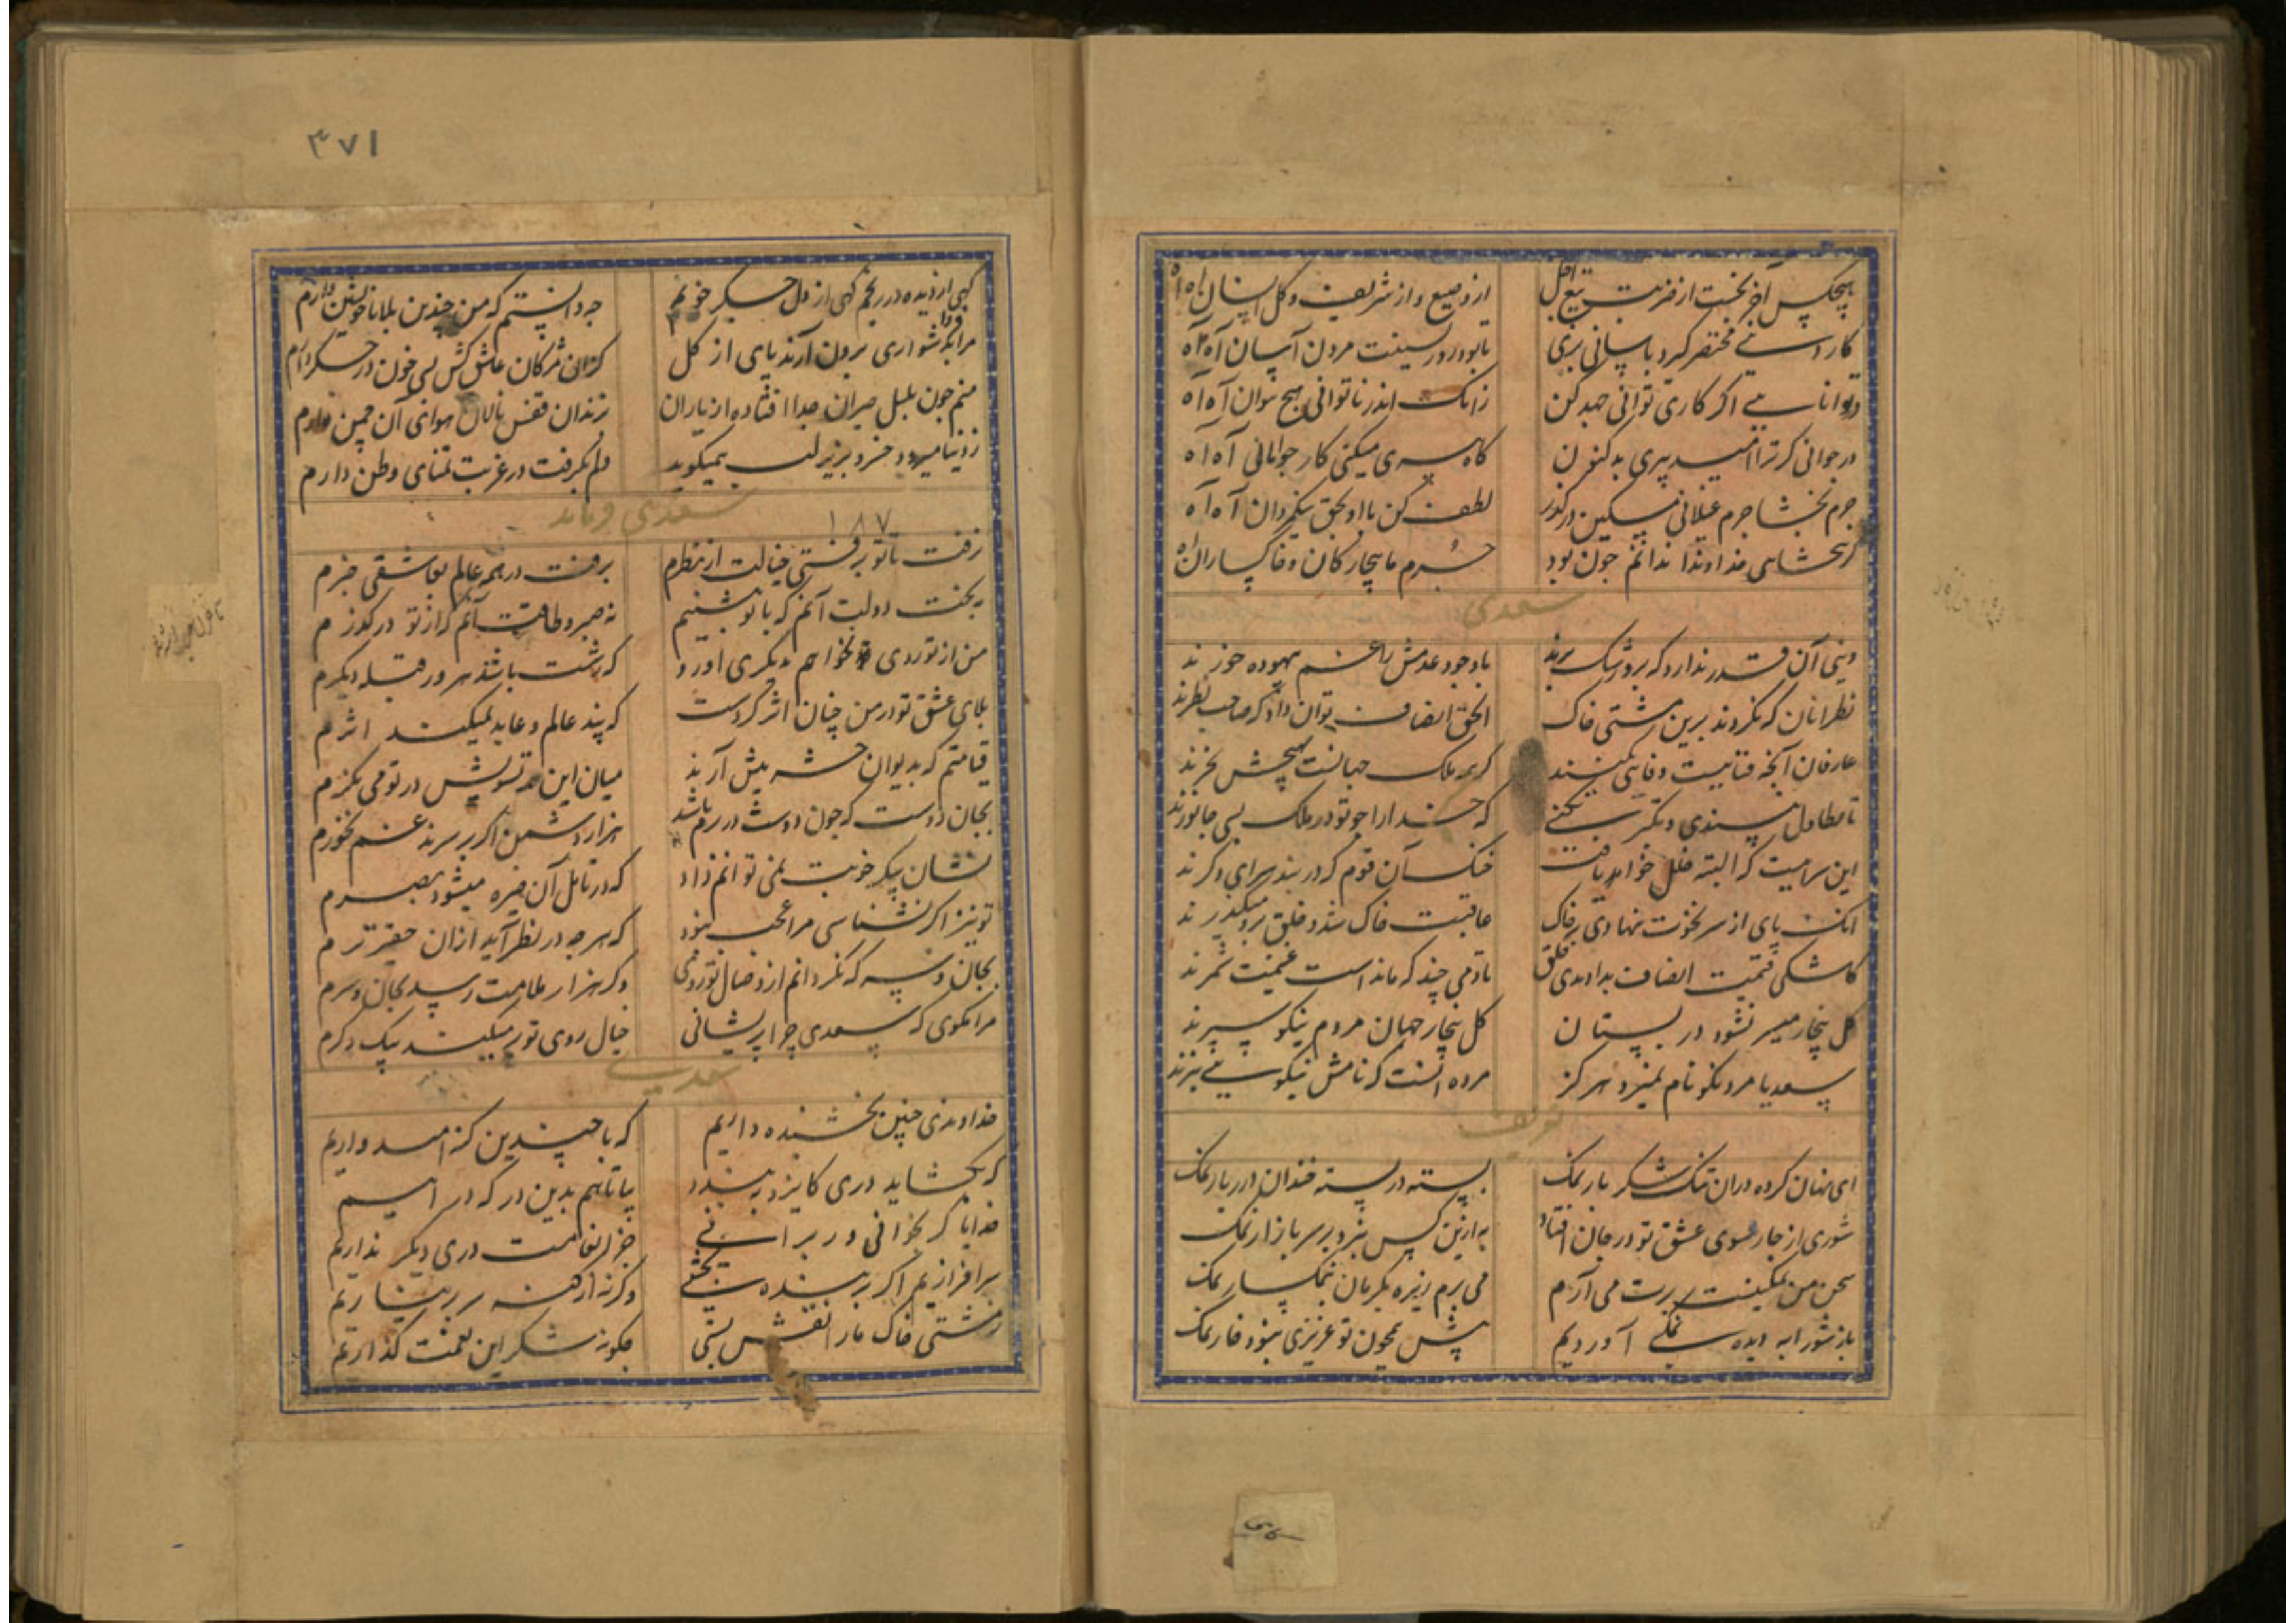 هیچکس آخر نجست از ضربت تیغ اجل از وضیع و از شریف و کل انسان آه آه
کار دنیا مختصر کرد باسانی بری تا بود در سینت مردن آسان آه آه
زانک اندر ناتوانی هیچ نتوان آه آه
در جوانی کر ترا امید پیری بد کنون کاه پیری میکنی کار جوانانی آه آه
جرم بخشا جرم مسکین در کذر لطف کن با او بحق نیکمردان آه آه
کر نبخشای خداوندا ندانم جون بود جرم ما بیچارکان وفاکساران آه
سعدی
دنیی آن قدر ندارد که برو رشک برند با وجود عدمش را غم بیهوده خورند
نظر آنان که نکردند برین مشتی خاک الحق انصاف توان داد که صاحب نظرند
عارفان آنچه فنا نیست وفایی نکنند کر همه ملک جهانست بهیچش نخرند
تا تطاول نپسندی و تکبر نکنی که خدا را جو تو در ملک بسی جانورند
این سراییست که البته خلل خواهد یافت خنک آن قوم که در بند سرای دکرند
آنک پای از سر نخوت ننهادی بر خاک عاقبت خاک شد و خلق برو میکذرند
کاشکی قیمت انفاس بدانندی خلق تا دمی چند که ماند است غنیمت شمرند
کل بیخار میسر نشود در بستان کل بیخار جهان مردم نیکو سیرند
سعدیا مرد نکونام نمیرد هرکز مرده آنست که نامش بنیکویی نبرند
ای نهان کرده در آن تنک شکر بار نمک بسته در پسته خندان درربار نمک
شوری از چار سوی عشق تو در جان افتاد به ازین کس نبرد بر سر بازار نمک
سخن من نمکینست برت می آرم می برم زیره بکرمان بنمکسار نمک
باز شورابه دیده نمکی آوردیم پیش همچون تو عزیزی نبود خوار نمک
۳۷۱
کهی از دیده در ریزم کهی از دل جکر خونم چه دانستم که من چندین بلا با خویشتن دارم
مرا بدشواری برون آرند پای از کل کزان مژکان عاشق کش بسی خون در جکر دارم
منم جون بلبل حیران جدا افتاده از یاران بزندان قفس نالان هوای آن چمن دارم
ز دنیا میرود خسرو بزیر لب نمیکوید دلم بکرفت در غربت تمنای وطن دارم
سعدی فرماید
۱۸۷
نرفت تا تو برفتی خیالت از نظرم برفت در همه عالم بعاشقی خبرم
نه بخت و دولت آنم که با تو بنشینم نه صبر و طاقت آنم که از تو درکذرم
من از تو روی نخواهم بدیکری آورد که زشت باشد هر روز قبله دیکرم
بلای عشق تو در من چنان اثر کردست که پند عالم و عابد نمیکند اثرم
قیامتم که بدیوان حشر پیش آرند میان این همه تشویش در تو می نکرم
بجان دوست که جون دوست در برم باشد هزار دشمن اکر بر سرند غم نخورم
نشان پیکر خوبت نمی توانم داد که در تامل آن خیره میشود بصرم
تو نیز اکر نشناسی مرا عجب نبود که هر چه در نظر آید از آن حقیرترم
بجان و سر که نکردانم از وصال تو روی وکر هزار ملامت رسد بجان و سرم
مرا مکوی که سعدی چرا پریشانی خیال روی تو بر میکند بیک دکرم
سعدی
خداوندی چنین بخشنده داریم که با چندین کنه امیدواریم
که بکشاید دری کایزد ببندد بیا تا هم بدین درکه در آییم
خدایا کر بخوانی ور برانی جز انعامت دری دیکر نداریم
سر افرازیم اکر بر بنده بخشی وکرنه از کنه سر بر نیاریم
ز مشتی خاک ما را نقش بستی چکونه شکر این نعمت کذاریم